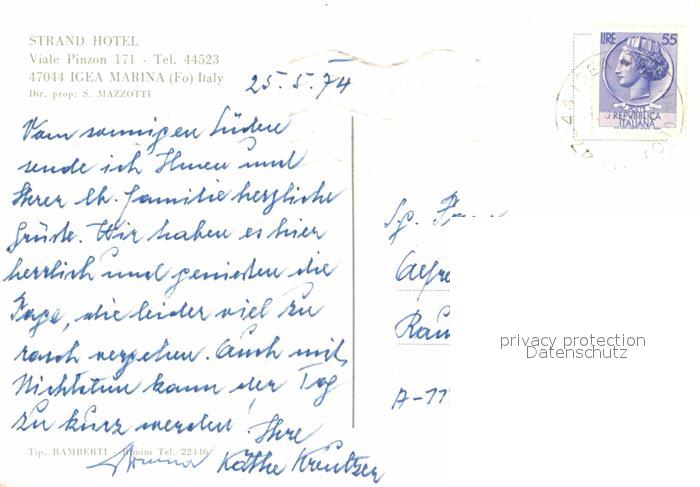 STRAND HOTEL
Viale Pinzon 171 - Tel. 44523
47044 IGEA MARINA (Fo) Italy
Dir. prop: S. MAZZOTTI
25.5.74
LIRE 55
REPVBBLICA
ITALIANA
Vom sonnigen Süden
sende ich Ihnen und
Ihrer lb. Familie herzliche
Grüße. Wir haben es hier
herrlich und genießen die
Tage, die leider viel zu
rasch vergehen. Auch mit
Nichtstun kann der Tag
zu kurz werden! Ihre
Käthe Kreutzer
Tip. RAMBERTI - Rimini Tel. 22446
Sg.
Alfre
Rau
A-11
privacy protection
Datenschutz